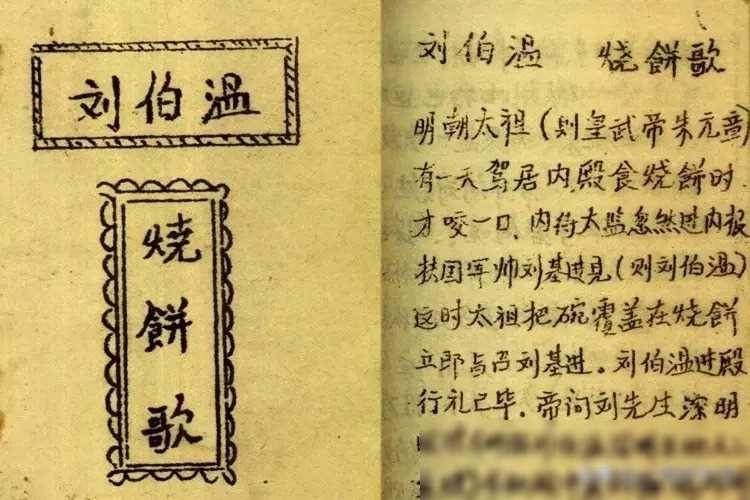 刘伯温
烧餅歌
刘伯温 烧餅歌
明朝太祖(则皇武帝朱元章)
有一天驾居内殿食烧餅时
才咬一口、内侍太监忽然进内报
扶国军帅刘基进見(则刘伯温)
这时太祖把碗覆盖在烧餅
立即旨召刘基进。刘伯温进殿
行礼已毕.帝问刘先生深明